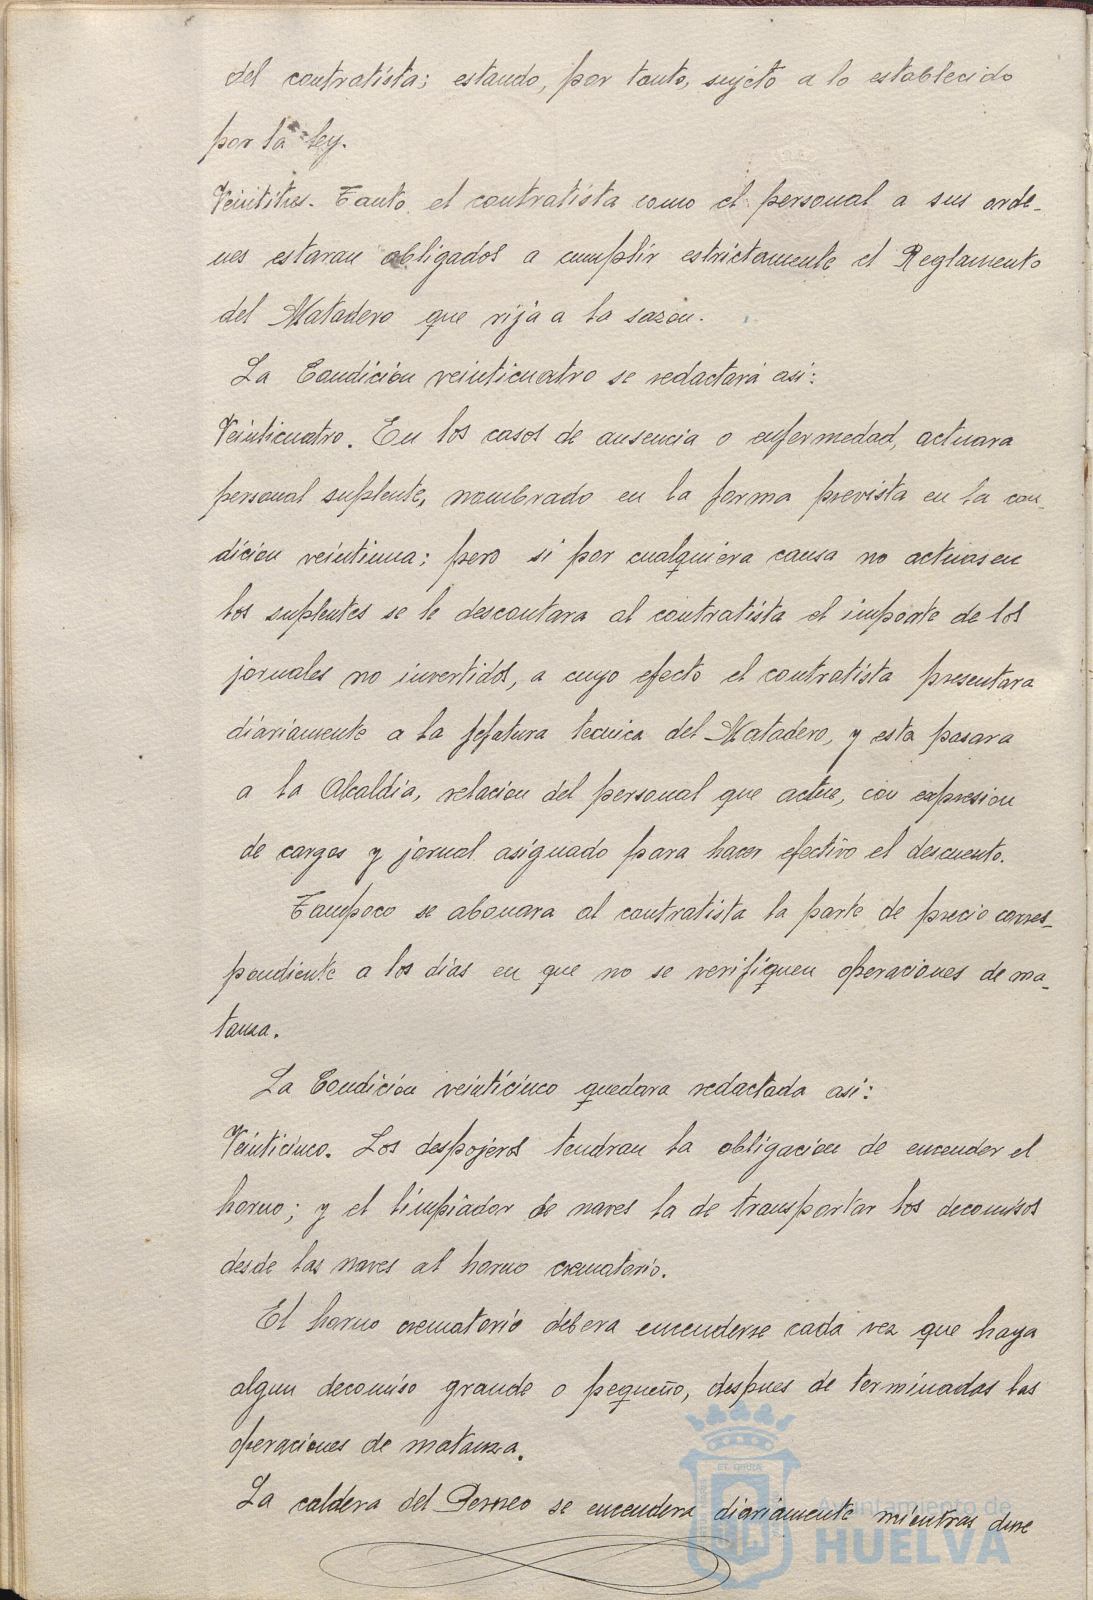 del contratista; estando, por tanto, sujeto a lo establecido
por la ley.
Veintitres. Tanto el contratista como el personal a sus orde-
nes estaran obligados a cumplir estrictamente el Reglamento
del Matadero que rija a la sazon.
La Condición veinticuatro se redactará asi:
Veinticuatro. En los casos de ausencia o enfermedad, actuara
personal suplente, nombrado en la forma prevista en la con-
dicion veintiuna; pero si por cualquiera causa no actuasen
los suplentes se le descontara al contratista el importe de los
jornales no invertidos, a cuyo efecto el contratista presentara
diariamente a la jefatura tecnica del Matadero, y esta pasara
a la Alcaldia, relacion del personal que actue, con expresion
de cargos y jornal asignado para hacer efectivo el descuento.
Tampoco se abonara al contratista la parte de precio corres-
pondiente a los dias en que no se verifiquen operaciones de ma-
tanza.
La Condición veinticinco quedara redactada asi:
Veinticinco. Los despojeros tendran la obligacion de encender el
horno; y el limpiador de naves la de transportar los decomisos
desde las naves al horno crematorio.
El horno crematorio debera encenderse cada vez que haya
algun decomiso grande o pequeño, despues de terminadas las
operaciones de matanza.
La caldera del Perneo se encendera diariamente mientras dure
Ayuntamiento de
HUELVA